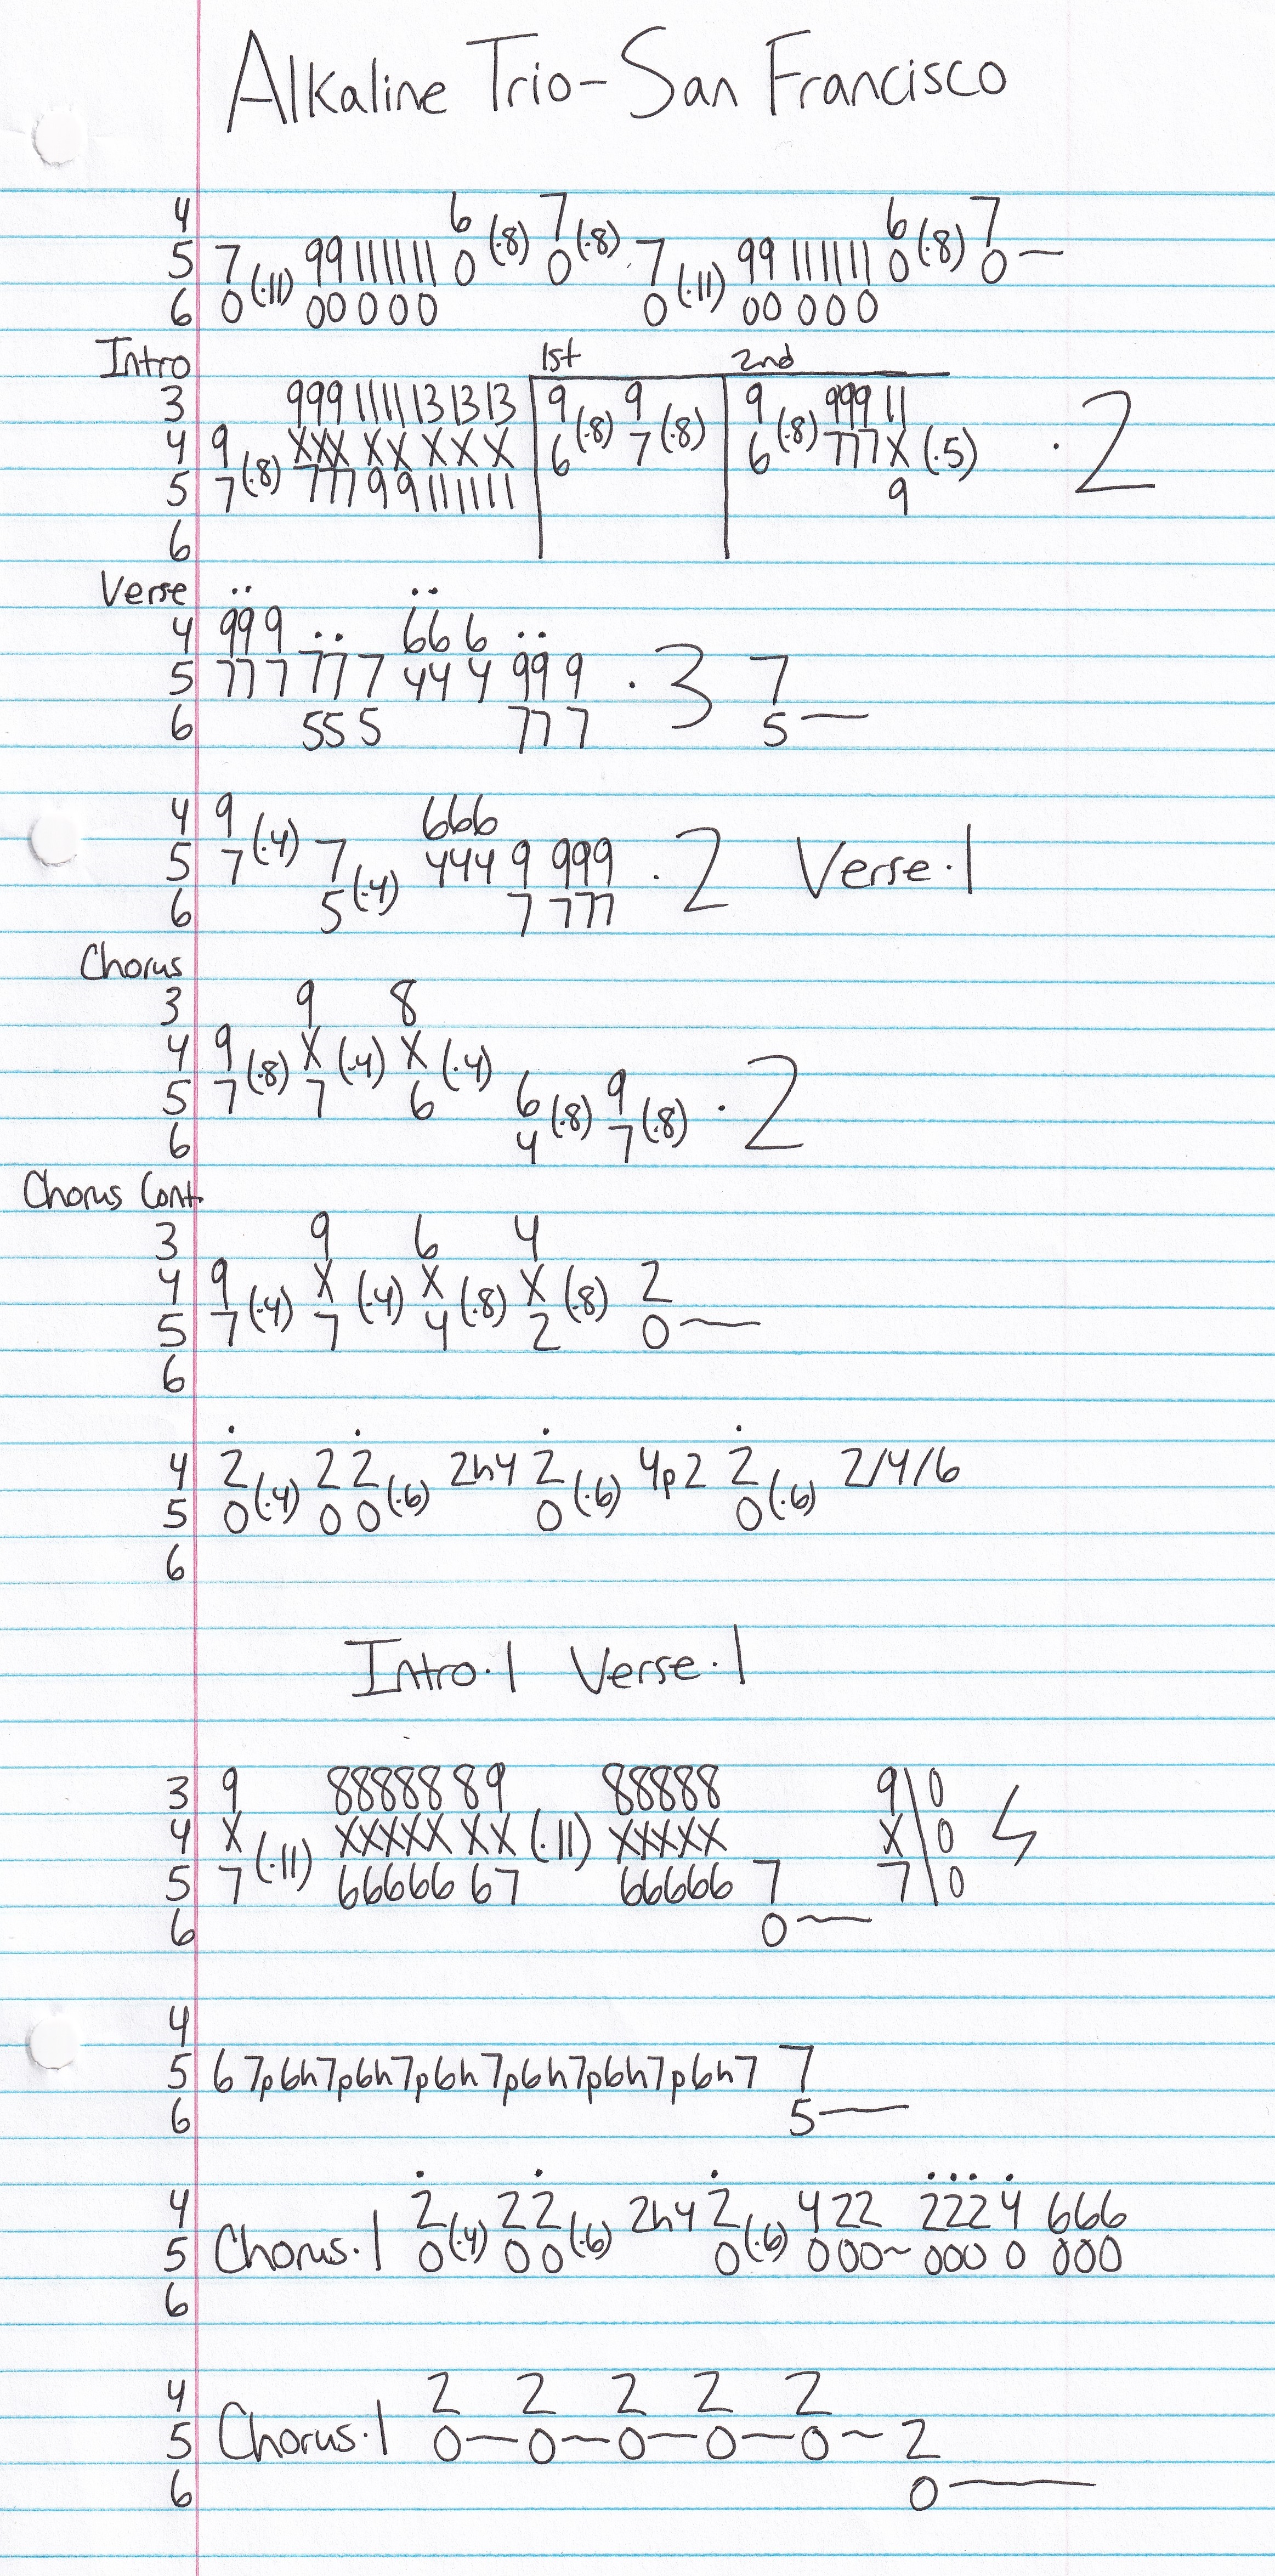 Alkaline Trio-San Francisco
4 6 7 6 7
5 7 (·11) 99 11 11 11 0 (·8) 0 (·8) 7 (·11) 99 11 11 11 0 (·8) 0 —
6 0 00 0 0 0 0 00 0 0 0
Intro 1st 2nd
3 999 11 11 13 13 13 9 9 9 999 11
4 9 XXX XX X X X 6 (·8) 7 (·8) 6 (·8) 777 X (·5) · 2
5 7 (·8) 777 9 9 11 11 11 9
6
Verse .. ..
4 99 9 .. 66 6 ..
5 77 7 77 7 44 4 99 9 · 3 7
6 55 5 77 7 5 —
4 9 (·4) 666
5 7 7 444 9 999 · 2 Verse·1
6 5 (·4) 7 777
Chorus
3 9 8
4 9 (·8) X (·4) X (·4)
5 7 7 6 6 (·8) 9 (·8) · 2
6 4 7
Chorus Cont.
3 9 6 4
4 9 (·4) X (·4) X (·8) X (·8) 2
5 7 7 4 2 0 —
6
. . . .
4 2 (·4) 2 2 (·6) 2h4 2 (·6) 4p2 2 (·6) 2/4/6
5 0 0 0 0 0
6
Intro·1 Verse·1
3 9 88888 89 88888 9\0
4 X (·11) XXXXX XX (·11) XXXXX X\0
5 7 66666 67 66666 7 7\0
6 0 —
4
5 6 7p6h7p6h7p6h7p6h7p6h7p6h7 7
6 5 —
. . . ... .
4 2 (·4) 2 2 (·6) 2h4 2 (·6) 4 22 222 4 666
5 Chorus·1 0 0 0 0 0 00~ 000 0 000
6
4 2 2 2 2 2
5 Chorus·1 0 — 0 — 0 — 0 — 0 ~ 2
6 0 —